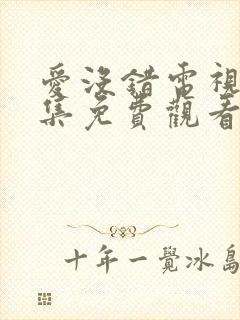 愛沒錯電視
集免費觀看
十年一覺冰島